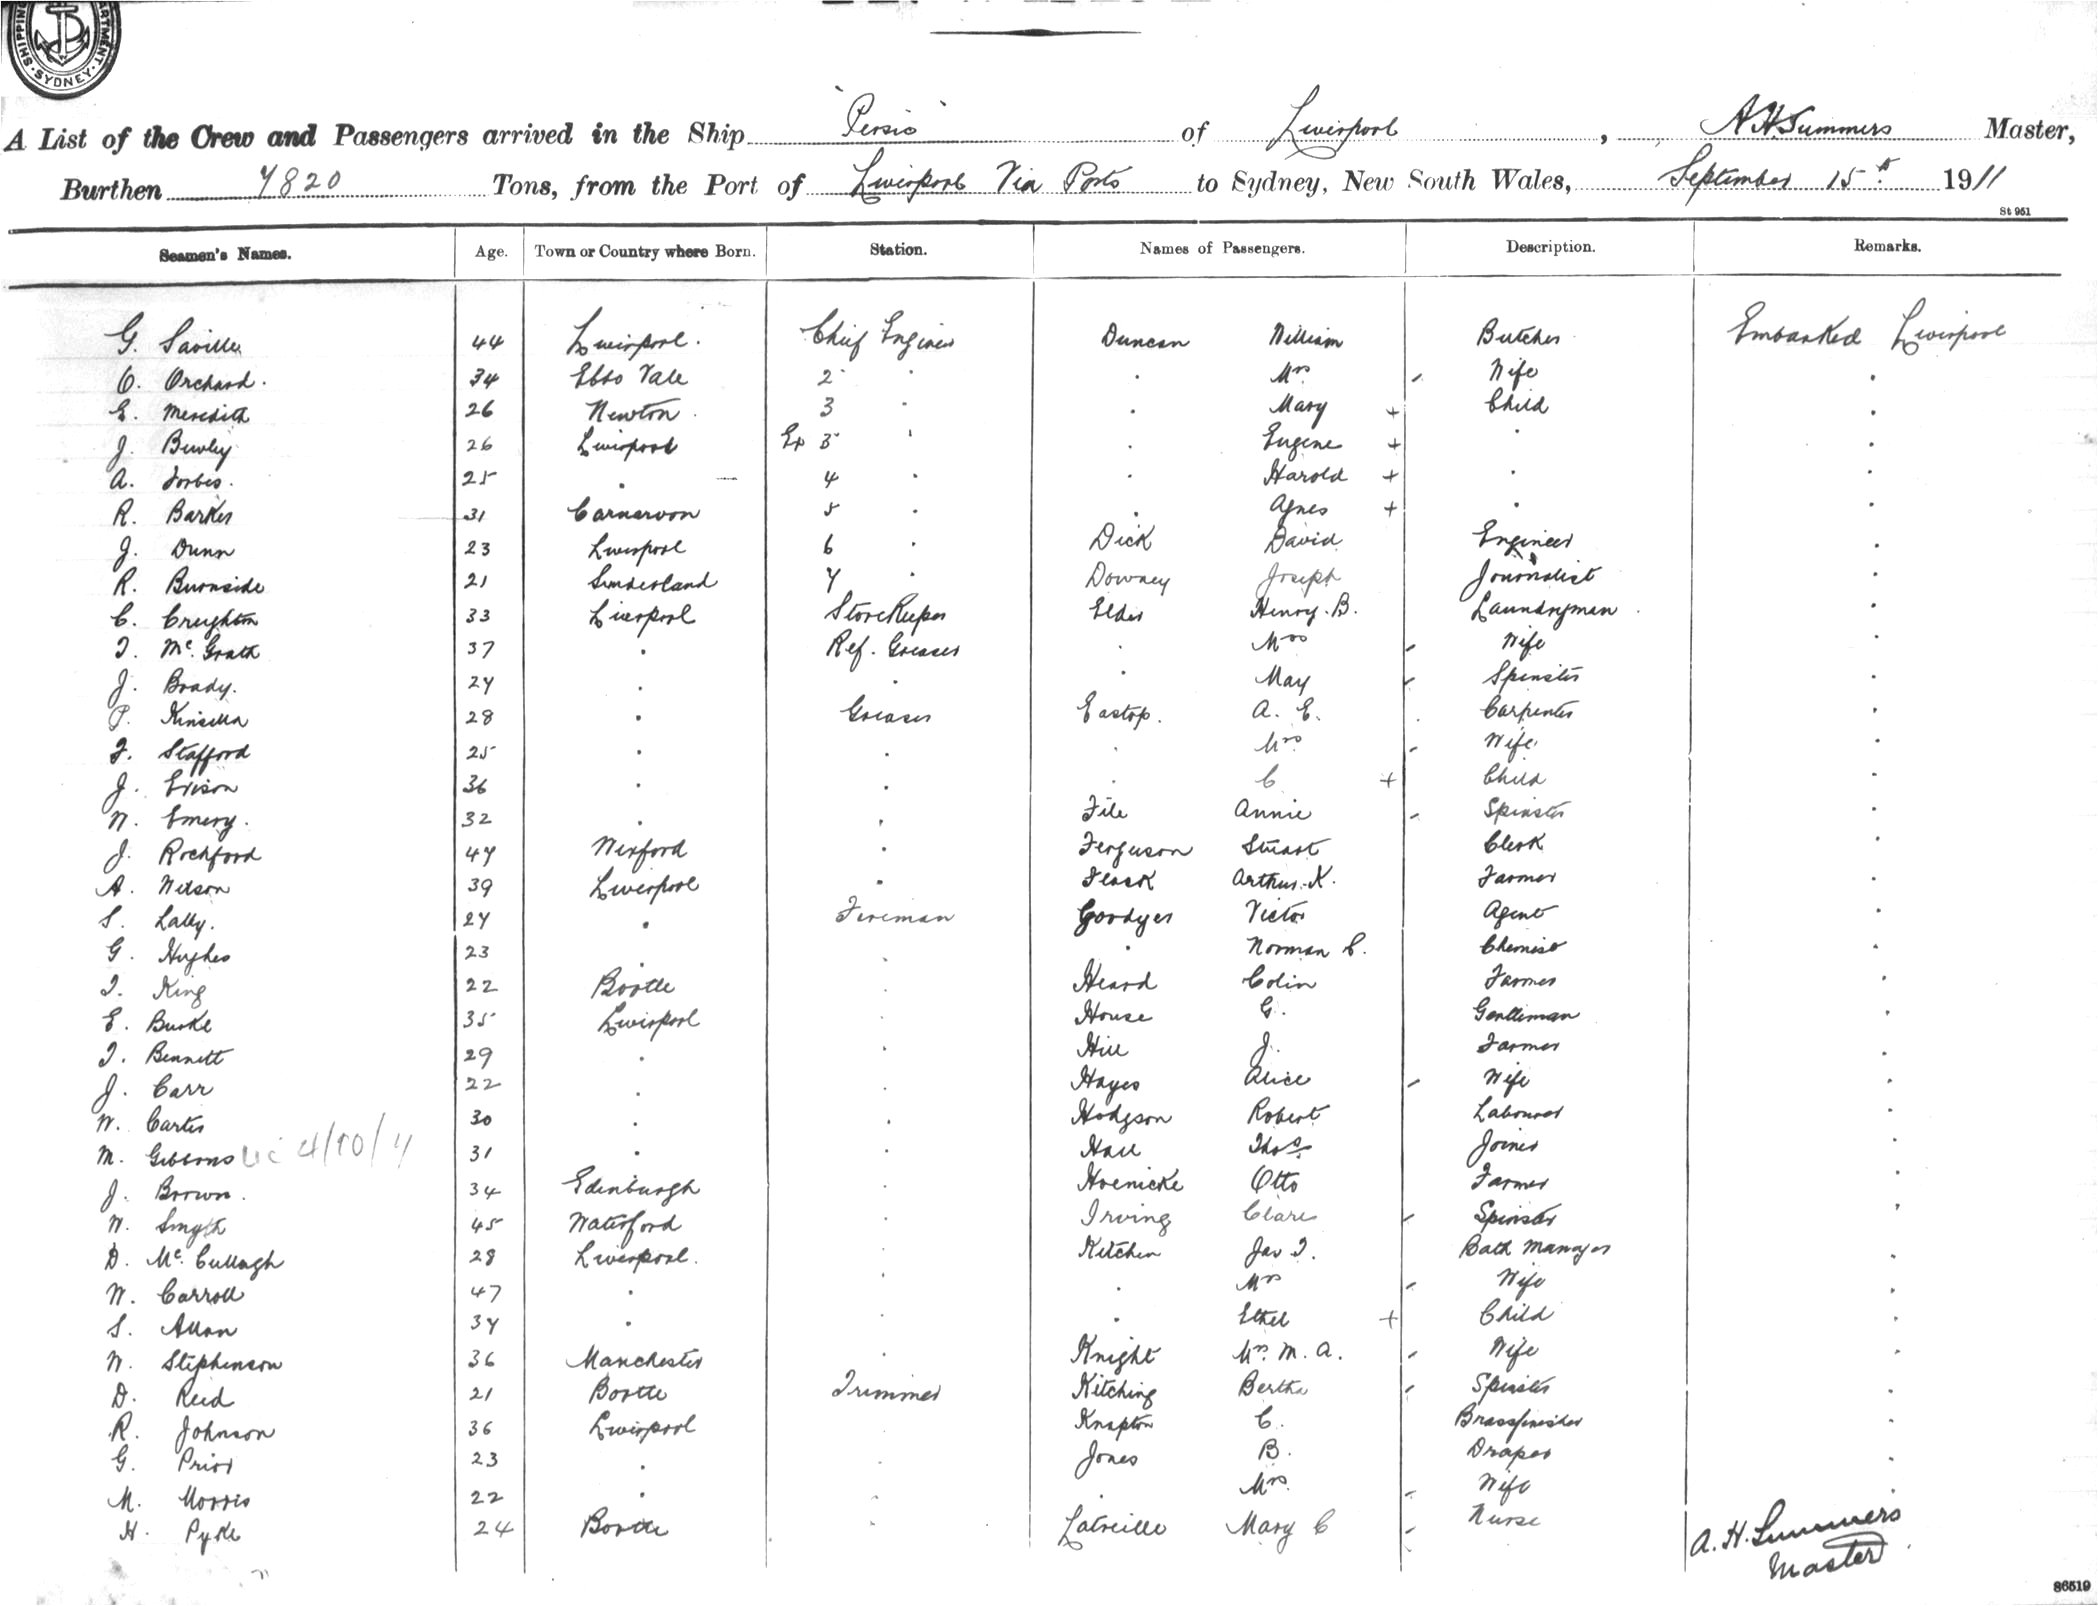 SHIPPING DEPARTMENT. SYDNEY.
A List of the Crew and Passengers arrived in the Ship "Persic" of Liverpool, A H Summers Master,
Burthen 7820 Tons, from the Port of Liverpool Via Ports to Sydney, New South Wales, September 15th 1911
St 951
Seamen's Names. Age. Town or Country where Born. Station. Names of Passengers. Description. Remarks.
G. Saville 44 Liverpool. Chief Engineer Duncan William Butcher Embarked Liverpool
O. Orchard. 34 Ebbo Vale 2 " " Mrs Wife "
E. Meredith 26 Newton 3 " " Mary + Child "
J. Bewley 26 Liverpool Ex 3 " " Eugene + " "
A. Forbes. 25 " 4 " " Harold + " "
R. Barker 31 Carnarvon 5 " " Agnes + " "
J. Dunn 23 Liverpool 6 " Dick David Engineer "
R. Burnside 21 Sunderland 7 " Downey Joseph Journalist "
C. Creighton 33 Liverpool Storekeeper Elder Henry. B. Laundryman "
T. McGrath 37 " Ref. Greaser " Mrs Wife "
J. Brady. 27 " " " May Spinster "
P. Kinsella 28 " Greaser Eastop. A. E. Carpenter "
F. Stafford 25 " " " Mrs Wife "
J. Evison 36 " " " C + Child "
W. Emery. 32 " " File Annie Spinster "
J. Rochford 47 Wexford " Ferguson Stuart Clerk "
A. Wilson 39 Liverpool " Flack Arthur. K. Farmer "
S. Lally. 27 " Fireman Goodyer Victor Agent "
G. Hughes 23 " " " Norman C. Chemist "
T. King 22 Bootle " Heard Colin Farmer "
E. Burke 35 Liverpool " House G. Gentleman "
T. Bennett 29 " " Hill J. Farmer "
J. Carr 22 " " Hayes Alice Wife "
W. Carter 30 " " Hodgson Robert Labourer "
M. Gibbons 4/10/11 31 " " Hall Thos Joiner "
J. Brown. 34 Edinburgh " Hoenicke Otto Farmer "
W. Smyth 45 Waterford " Irving Clare Spinster "
D. McCullagh 28 Liverpool. " Kitchen Jas T. Bath Manager "
W. Carroll 47 " " " Mrs Wife "
S. Allan 37 " " " Ethel + Child "
W. Stephenson 36 Manchester " Knight Mrs. M. A. Wife "
D. Reid 21 Bootle Trimmer Kitching Bertha Spinster "
R. Johnson 36 Liverpool " Knapton C. Brassfinisher "
G. Prior 23 " " Jones B. Draper "
M. Morris 22 " " " Mrs. Wife "
H. Pyke 24 Bootle " Latreille Mary C Nurse
A. H. Summers
Master
86519